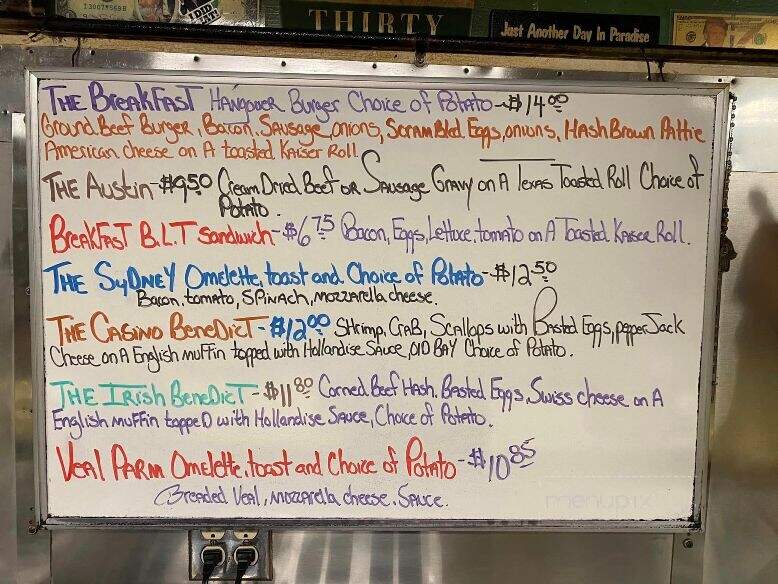 I3007456B
I DID THAT!
THIRTY
Just Another Day In Paradise
THE BreakFAST HANgover Burger Choice of Potato - $14.00
Ground Beef Burger, Bacon, Sausage, onions, Scrambled Eggs, onions, Hash Brown Pattie
American cheese on A toasted Kaiser Roll
THE Austin - $9.50 Cream Dried Beef or Sausage Gravy on A Texas Toasted Roll Choice of
Potato.
BreakFAST B.L.T Sandwich - $6.75 Bacon, Eggs, Lettuce, tomato on A Toasted Kaiser Roll.
THE SyDNEY Omelette, toast and Choice of Potato - $12.50
Bacon, tomato, SPinach, mozzarella cheese.
THE CASINO BENEDICT - $12.00 Shrimp, Crab, Scallops with Basted Eggs, pepper Jack
Cheese on A English muffin topped with Hollandise Sauce, OlD BAY Choice of Potato.
THE IRish BeneDicT - $11.80 Corned Beef Hash, Basted Eggs, Swiss cheese on A
English muffin toppeD with Hollandise Sauce, Choice of Potato.
VeAl PArm Omelette, toast and Choice of Potato - $10.85
Breaded Veal, mozzarella cheese, Sauce.
menupix